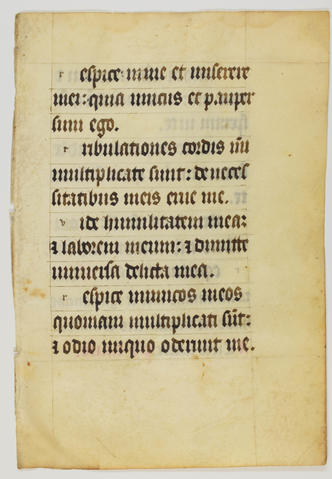 r espice in me et miserere
mei: quia unicus et pauper
sum ego.
t ribulationes cordis mi
multiplicate sunt: de neces
sitatibus meis erue me.
v ide humilitatem meā:
⁊ laborem meum: ⁊ dimitte
universa delicta mea.
r espice inimicos meos
quoniam multiplicati sūt:
⁊ odio iniquo oderunt me.